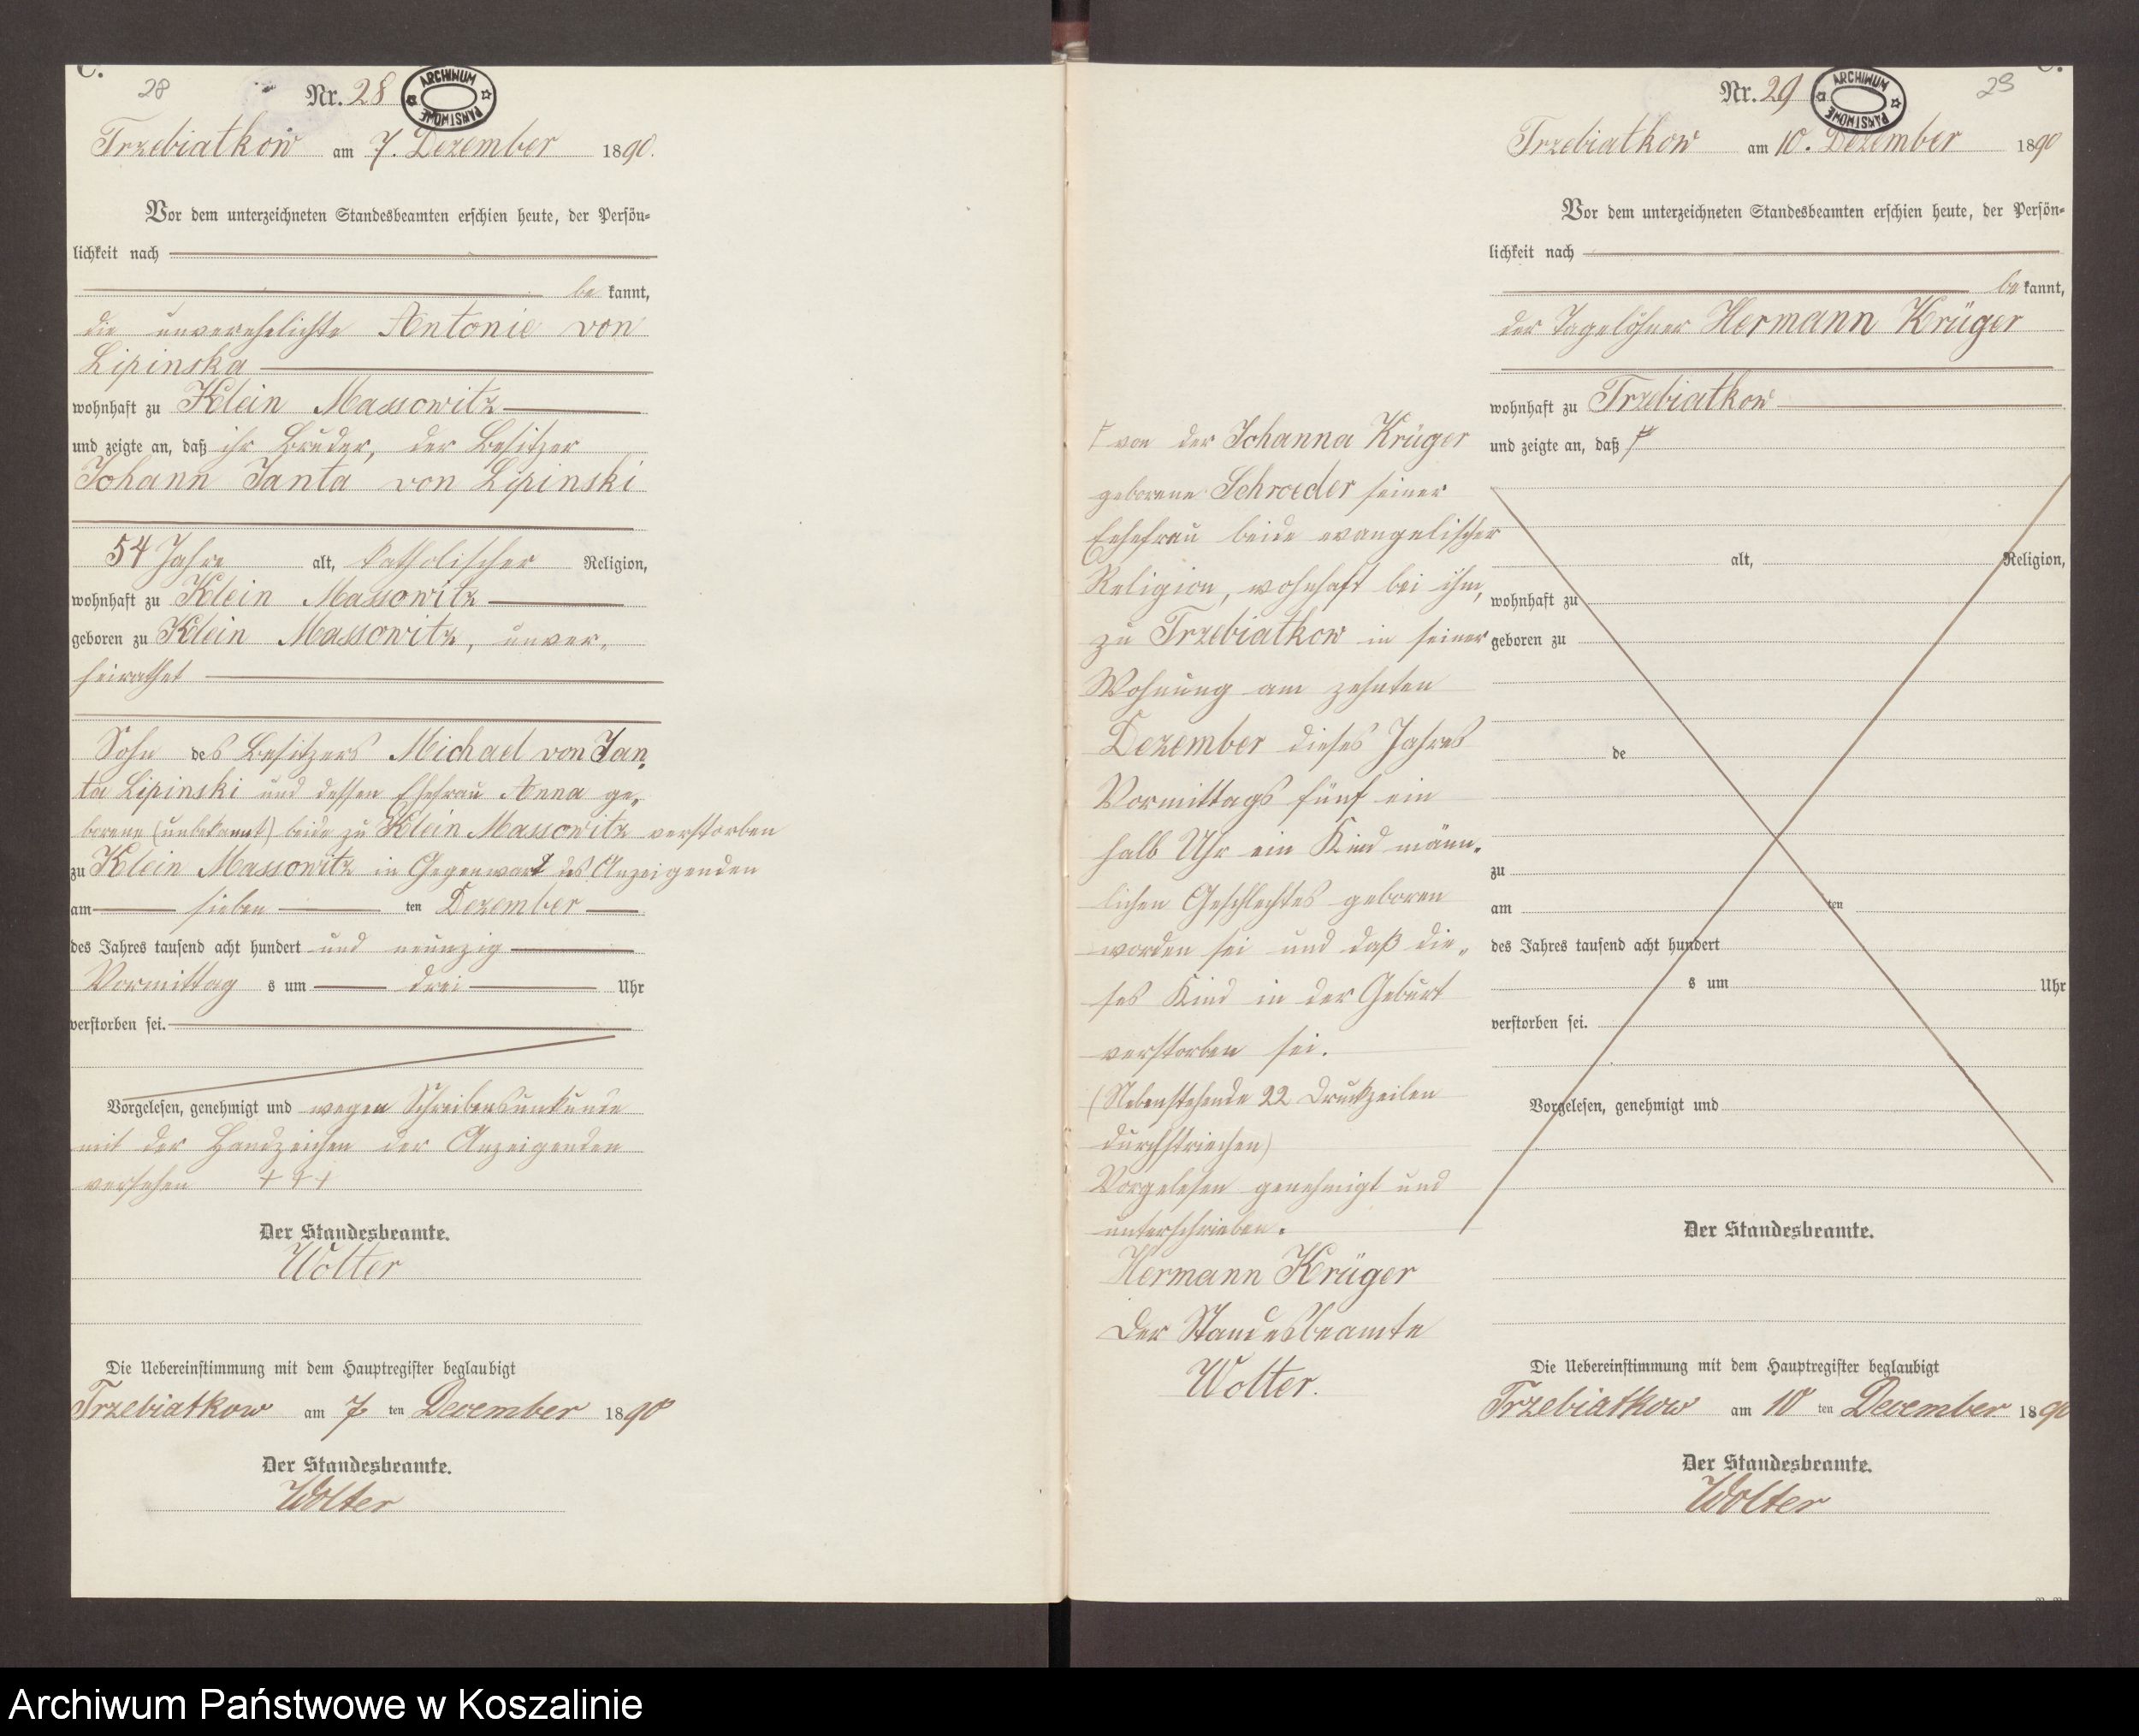 C.
28
Nr. 28
ARCHIWUM PAŃSTWOWE
Trzebiatkow am 7. Dezember 1890.
Vor dem unterzeichneten Standesbeamten erschien heute, der Persön=
lichkeit nach
be kannt,
die unverehelichte Antonie von
Lipinska
wohnhaft zu Klein Massowitz
und zeigte an, daß ihr Bruder, der Besitzer
Johann Janta von Lipinski
54 Jahre alt, katholischer Religion,
wohnhaft zu Klein Massowitz
geboren zu Klein Massowitz, unver„
heirathet
Sohn des Besitzers Michael von Jan„
ta Lipinski und dessen Ehefrau Anna ge„
borene (unbekannt) beide zu Klein Massowitz verstorben
zu Klein Massowitz in Gegenwart des Anzeigenden
am sieben ten Dezember
des Jahres tausend acht hundert und neunzig
Vormittag s um drei Uhr
verstorben sei.
Vorgelesen, genehmigt und wegen Schreibensunkunde
mit der Handzeichen der Anzeigenden
versehen + + +
Der Standesbeamte.
Wolter
Die Uebereinstimmung mit dem Hauptregister beglaubigt
Trzebiatkow am 7 ten December 1890
Der Standesbeamte.
Wolter
C.
Nr. 29
ARCHIWUM PAŃSTWOWE
29
Trzebiatkow am 10. Dezember 1890
Vor dem unterzeichneten Standesbeamten erschien heute, der Persön=
lichkeit nach
be kannt,
der Tagelöhner Hermann Krüger
wohnhaft zu Trzebiatkow
und zeigte an, daß
von der Johanna Krüger
geborene Schroeder seiner
Eehefrau beide evangelischer
Religion, wohnhaft bei ihm,
zu Trzebiatkow in seiner
Wohnung am zehnten
Dezember dieses Jahres
Vormittags fünf ein
halb Uhr ein Kind männ„
lichen Geschlechtes geboren
worden sei und daß die„
ses Kind in der Geburt
verstorben sei.
(Nebenstehende 22 Druckzeilen
durchstriechen)
Vorgelesen genehmigt und
unterschrieben.
Hermann Krüger
Der Standesbeamte
Wolter.
alt, Religion,
wohnhaft zu
geboren zu
de
zu
am ten
des Jahres tausend acht hundert
s um Uhr
verstorben sei.
Vorgelesen, genehmigt und
Der Standesbeamte.
Die Uebereinstimmung mit dem Hauptregister beglaubigt
Trzebiatkow am 10 ten December 1890
Der Standesbeamte.
Wolter
Archiwum Państwowe w Koszalinie